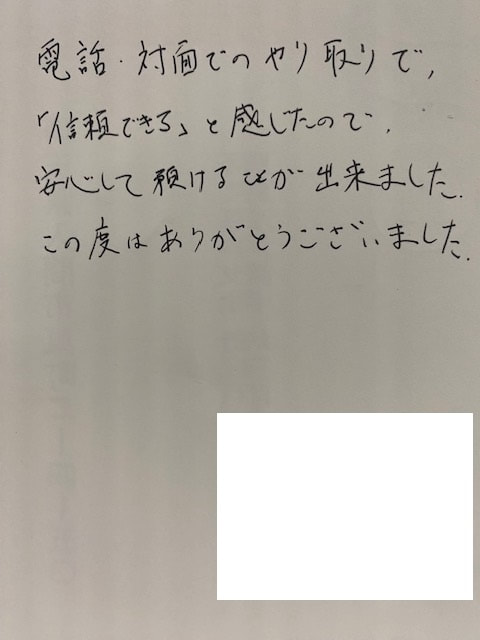 電話・対面でのやり取りで、
「信頼できる」と感じたので、
安心して預けることが出来ました.
この度はありがとうございました.